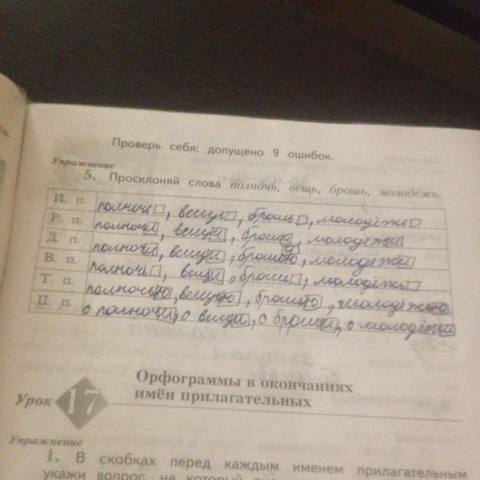 Проверь себя: допущено 9 ошибок.
Упражнение
5. Просклоняй слова полночь, вещь, брошь, молодёжь.
И. п. полночь, вещь, брошь, молодёжь
Р. п. полночи, вещи, броши, молодёжи
Д. п. полночи, вещи, броши, молодёжи
В. п. полночь, вещи, брошь, молодёжь
Т. п. полночью, вещью, брошью, молодёжью
П. п. о полночи, о вещи, о броши, о молодёжи
Урок 17
Орфограммы в окончаниях
имён прилагательных
Упражнение
1. В скобках перед каждым именем прилагательным
укажи вопрос, на который